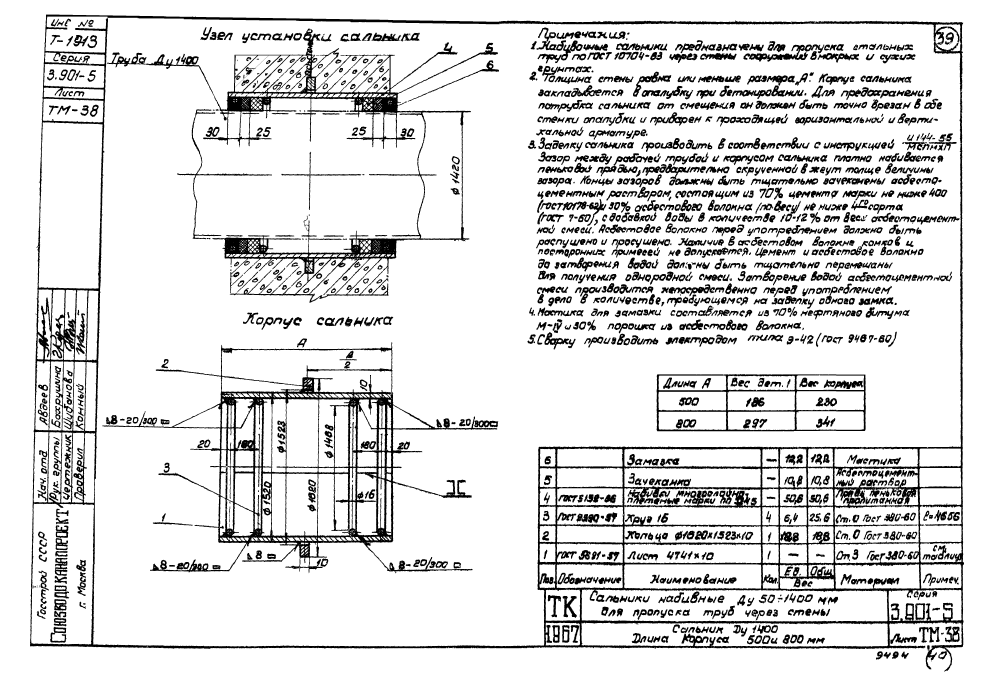 Инв №
Т-1913
Серия
3.901-5
Лист
ТМ-38
Узел установки сальника
Труба Ду 1400
4
5
6
30
25
25
30
ф1420
Корпус сальника
А
А
2
2
10
8-20/300
8-20/300
20
160
160
20
ф1523
ф1468
ф1520
ф16
3
1
8
10
8-20/300
8-20/300
Примечания:
39
1. Набивочные сальники предназначены для пропуска стальных
труб по ГОСТ 10704-63 через стены сооружений в мокрых и сухих
грунтах.
2. Толщина стены равна или меньше размера „А". Корпус сальника
закладывается в опалубку при бетонировании. Для предохранения
патрубка сальника от смещения он должен быть точно врезан в обе
стенки опалубки и приварен к проходящей горизонтальной и верти-
кальной арматуре.
3. Заделку сальника производить в соответствии с инструкцией И144-55
МСПМХП
Зазор между рабочей трубой и корпусом сальника плотно набивается
пеньковой прядью, предварительно скрученной в жгут толще величины
зазора. Концы зазоров должны быть тщательно зачеканены асбесто-
цементным раствором, состоящим из 70% цемента марки не ниже 400
(ГОСТ 10178-62) и 30% асбестового волокна (по весу) не ниже 4го сорта
(ГОСТ 7-60), с добавкой воды в количестве 10-12% от веса асбестоцемент-
ной смеси. Асбестовое волокно перед употреблением должно быть
распушено и просушено. Наличие в асбестовом волокне комков и
посторонних примесей не допускается. Цемент и асбестовое волокно
до затворения водой должны быть тщательно перемешаны
для получения однородной смеси. Затворение водой асбестоцементной
смеси производится непосредственно перед употреблением
в дело в количестве, требующемся на заделку одного замка.
4. Мастика для замазки составляется из 70% нефтяного битума
М-IV и 30% порошка из асбестового волокна.
5. Сварку производить электродом типа Э-42 (ГОСТ 9467-60)
Длина А Вес дет. 1 Вес корпуса
500 186 230
800 297 341
6 Замазка — 12,2 12,2 Мастика
5 Зачеканка — 10,8 10,8 Асбестоцемент-
ный раствор
4 ГОСТ 5152-66 Набивки многослойно-
плетеные марки по — 50,6 50,6 Прядь пеньковая
пропитанная
3 Круг 16 4 6,4 25,6 Ст. 0 Гост 380-60 ℓ=4656
2 Кольцо ф1620х1523х10 1 18,8 18,8 Ст. 0 Гост 380-60
1 ГОСТ 5681-57 Лист 4741х10 1 — — Ст 3 Гост 380-60 см.
таблицу
Поз. Обозначение Наименование Кол. Ед. Общ. Вес Материал Примеч.
ТК
1967
Сальники набивные Ду 50÷1400 мм
для пропуска труб через стены
Серия
3.901-5
Сальник Ду 1400
Длина Корпуса 500 и 800 мм
Лист ТМ-38
9494
40
Нач. отд. Авдеев
Рук. группы Бахрушина
Чертежник Шибанова
Проверил Конный
Госстрой СССР
СОЮЗВОДОКАНАЛПРОЕКТ
г. Москва